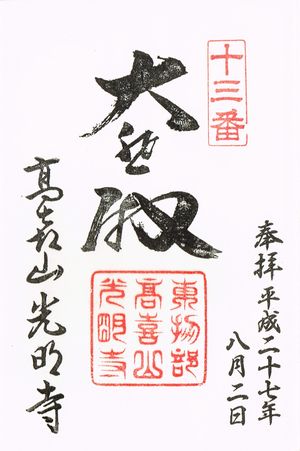 十三番
奉拝 平成二十七年
八月二日
大悲殿
東物部
高喜山
光明寺
高喜山光明寺